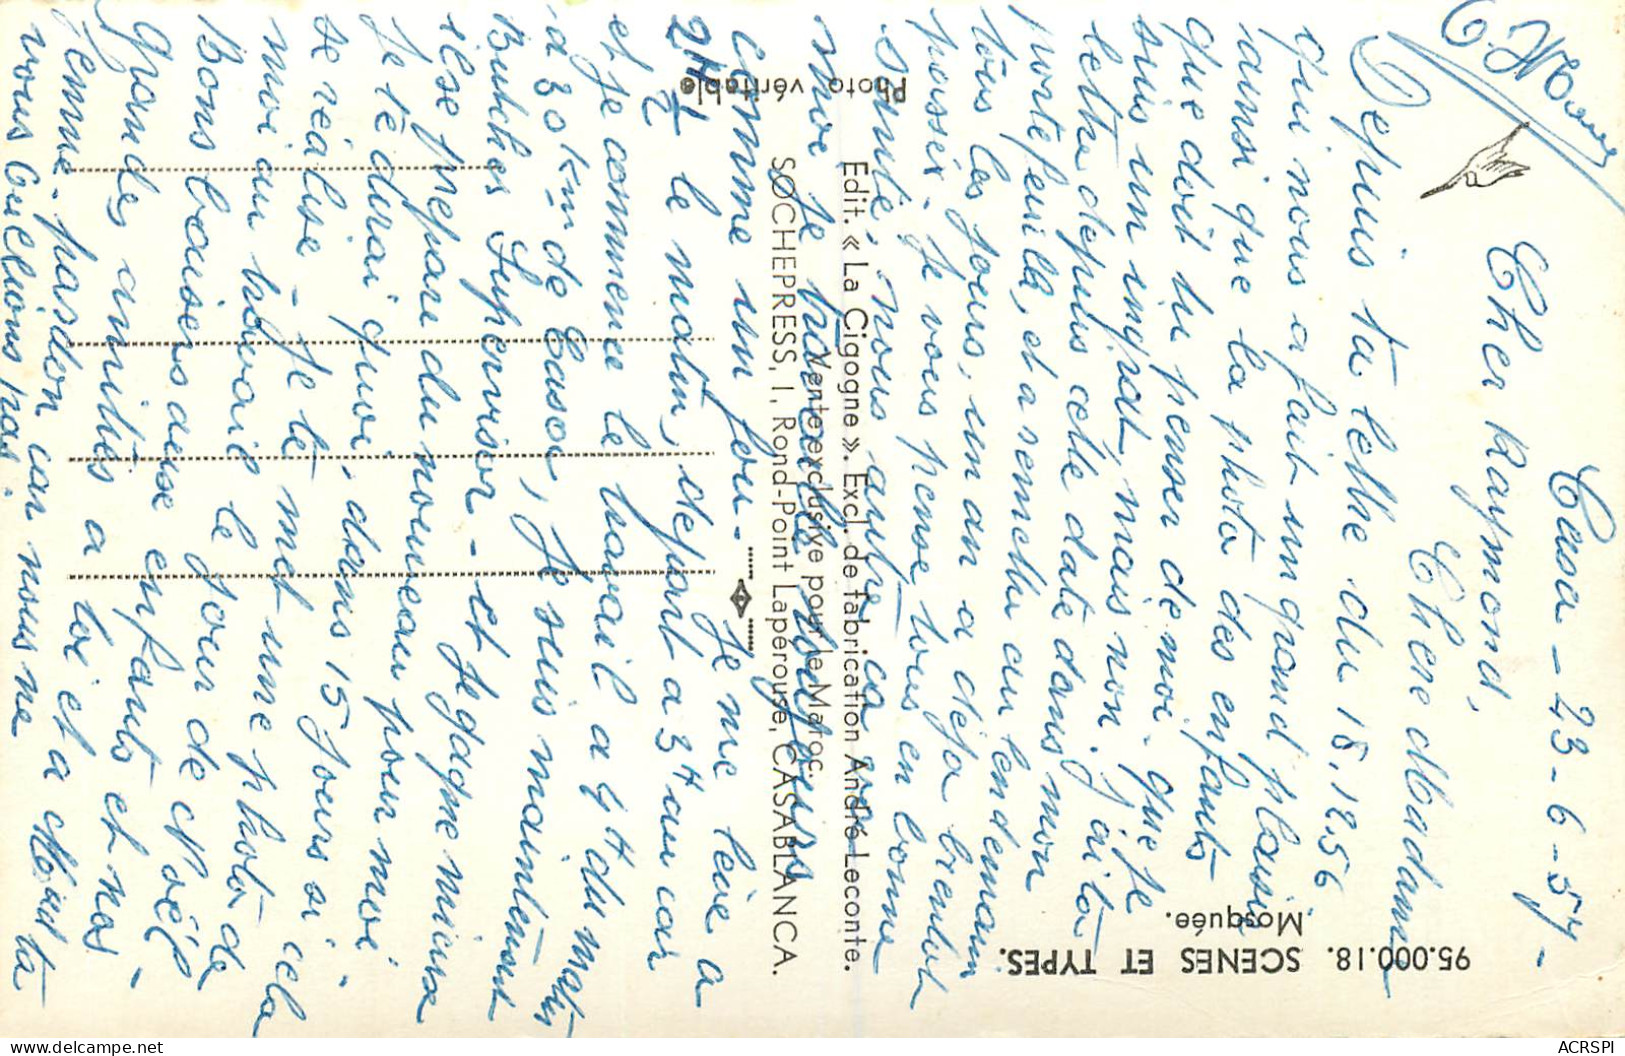 Casa - 23-6-57-
Cher Raymond,
Chere Madame
Depuis ta lettre du 18.12.56
qui nous a fait un grand plaisir
ainsi que la photo des enfants
que doit tu penser de moi. que je
suis un ingrat, mais non. j'ai ta
lettre depuis cete date dans mon
portefeuille, et a remettre au lendemain
tous les jours, un an a deja bientot
passer. Je vous pense tous en bonne
santé, nous autre ca va
moi je travaille toujours
comme un fou. Je me lève a
2H½ le matin, depart a 3H au car
et je commence le travail a 4H du matin
a 30 Km de Casa, Je suis maintenant
Butches Supervisor - et Je gagne mieux
il se prepare du nouveau pour moi
Je te dirai quoi, dans 15 jours si cela
se réalise - Je te met une photo de
moi au travail le jour de Noël
Bons baisers aux enfants et nos
grandes amitiés a toi et a ta
femme - pardon car nous ne
vous oublions pas.
95.000.18. SCENES ET TYPES.
Mosquée.
Edit. « La Cigogne ». Excl. de fabrication André Leconte.
Vente exclusive pour le Maroc.
SOCHEPRESS, 1, Rond-Point Lapérouse, CASABLANCA.
Photo véritable
ACRSPI